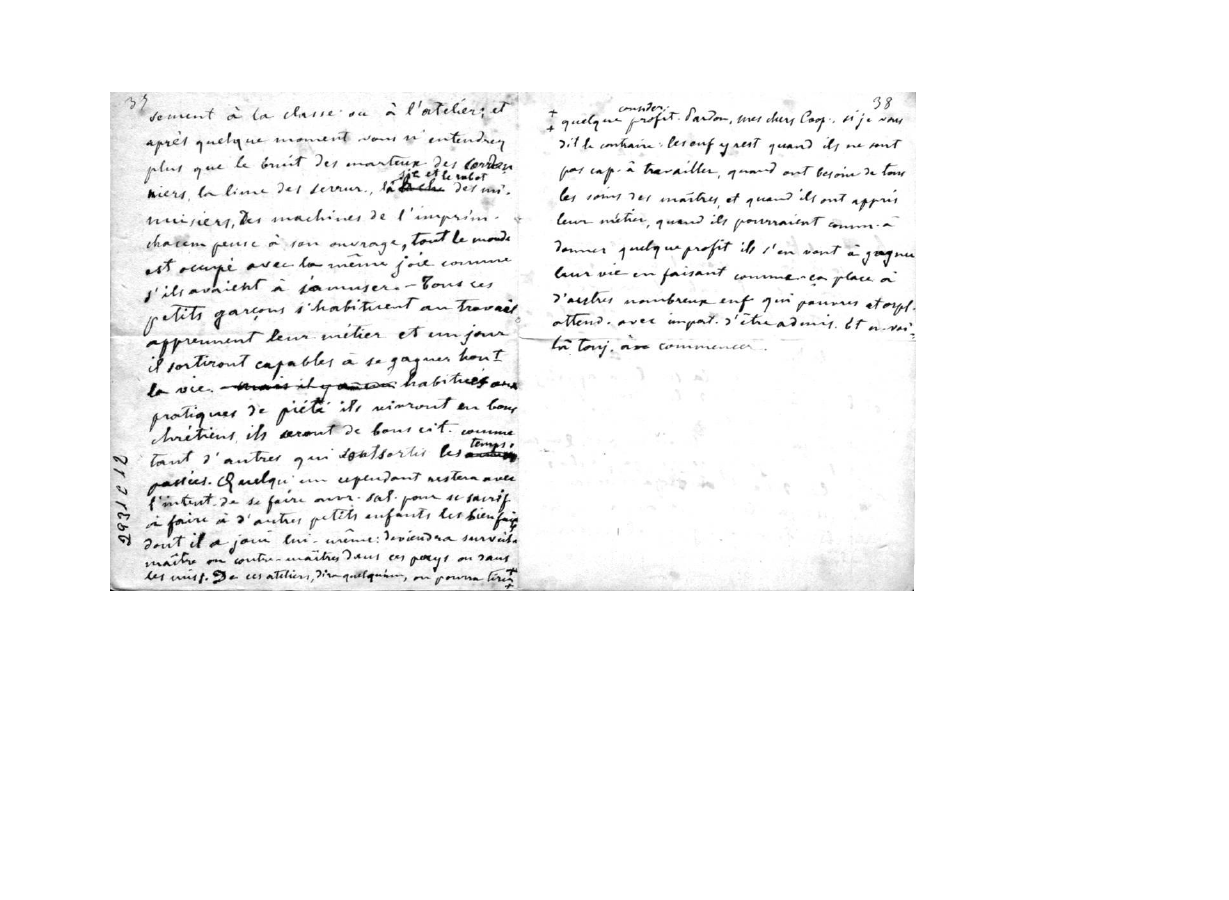 37
sement à la classe ou à l'atelier; et
après quelque moment vous n'entendrez
plus que le bruit des marteux des cordon
niers, la lime des serrur., la scie et le rabot des me-
nuisiers, des machines de l'imprim-
chacun pense à son ouvrage, tout le monde
est occupé avec la même joie comme
s'ils avaient à s'amuser - Tous ces
petits garçons s'habituent au travail
apprennent leur métier et un jour
il sortiront capables à se gagner hont
la vie. mais il y aura habitués aux
pratiques de piété ils vivront en bons
chrétiens, ils seront de bons cit. comme
tant d'autres qui sont sortis les temps
passées. Quelqu'un cependant restera avec
l'intent. de se faire sal. pour se sacrif
à faire à d'autres petits enfants les bienfaits
dont il a joui lui-même: deviendra surveill.
maître ou contre-maîtres dans ces pays ou dans
les miss. De ces ateliers, dira quelqu'un, on pourra tirer
2931 C 12
38
quelque consider. profit. Pardon, mes chers Coop. si je vous
dit le contraire: les enf y rest quand ils ne sont
pas cap. à travailler, quand ont besoin de tous
les soins des maîtres, et quand ils ont appris
leur métier, quand ils pourraient comm. à
donner quelque profit ils s'en vont à gagner
leur vie en faisant comme ça place à
d'autres nombreux enf qui pauvres et orph.
attend. avec impat. d'être admis. Et n. voi-
là touj. à commencer.